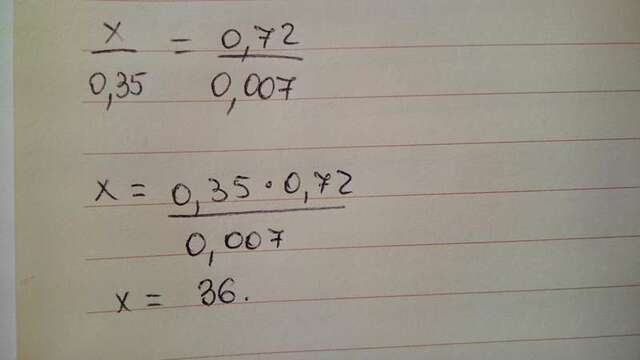 x / 0,35 = 0,72 / 0,007
x = 0,35 · 0,72 / 0,007
x = 36.